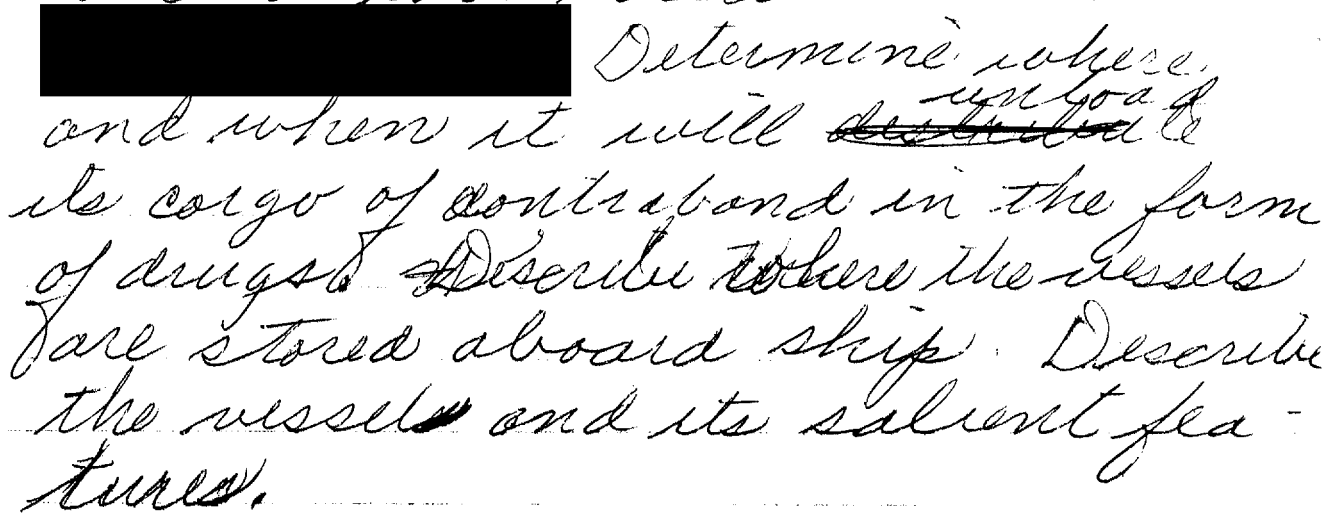 Determine where
and when it will ~~distribute~~ unload
its cargo of contraband in the form
of drugs. Describe where the vessels
are stored aboard ship. Describe
the vessel and its salient fea-
tures.